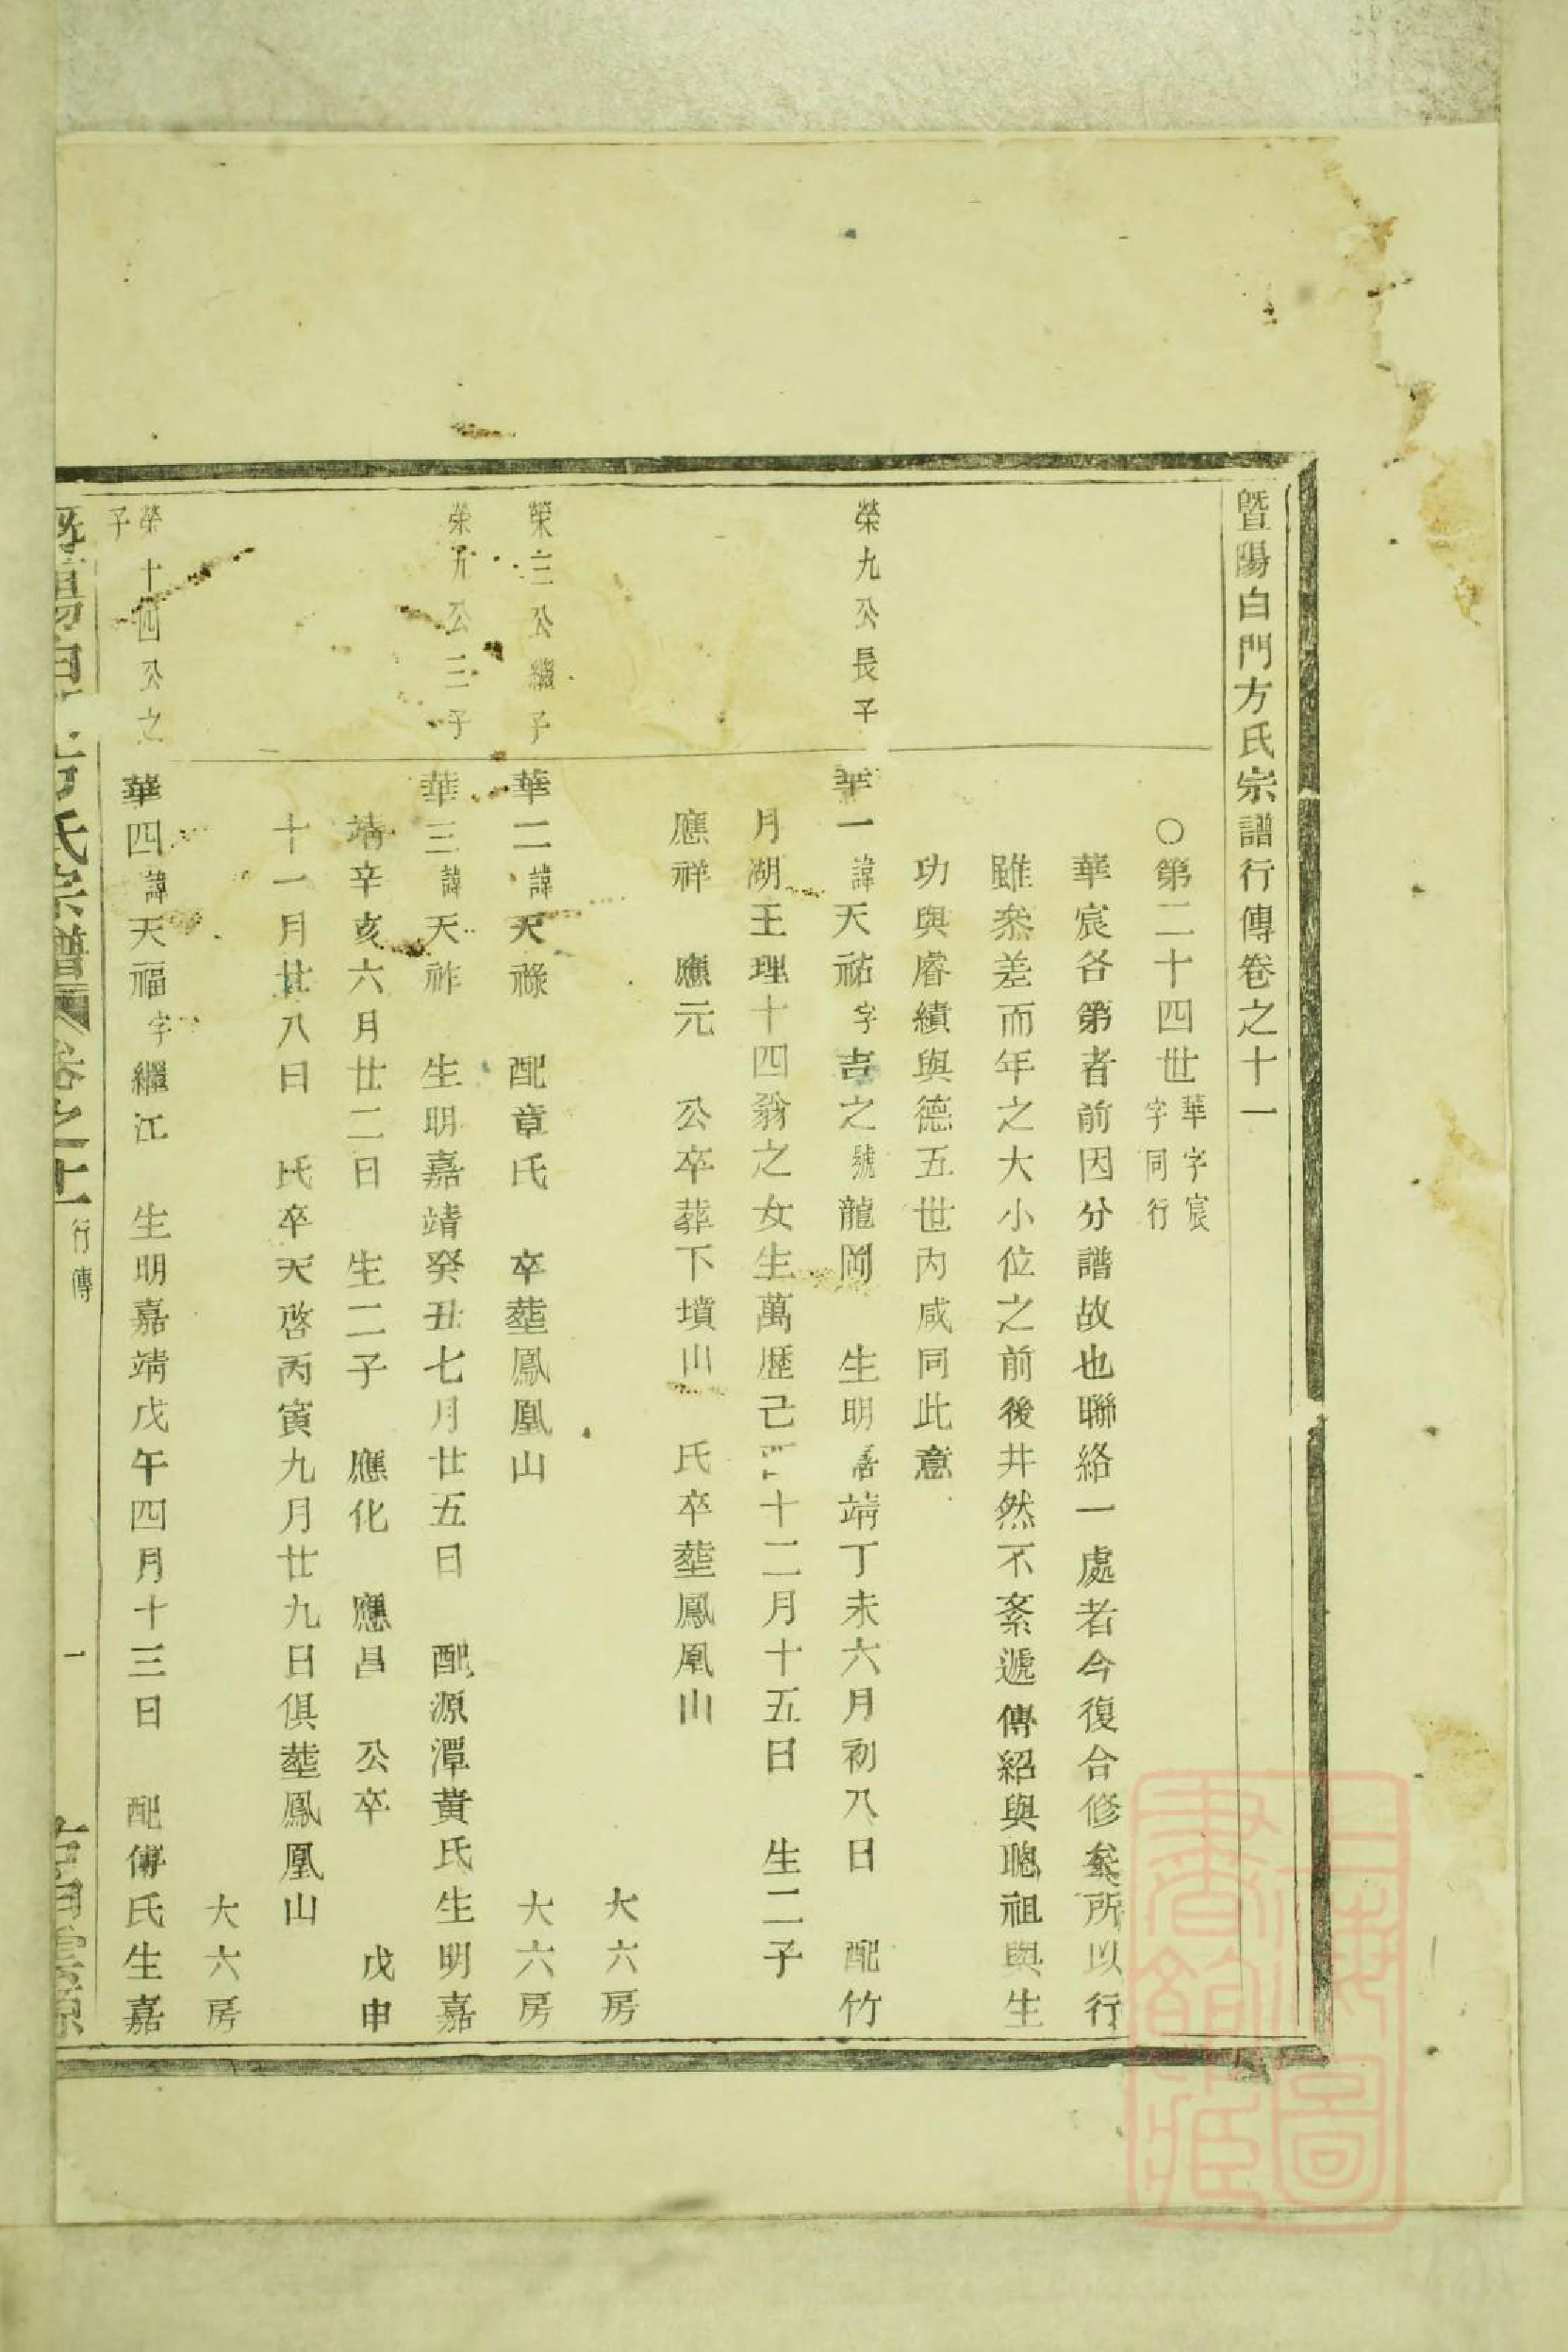 暨陽白門方氏宗譜行傳卷之十一
○第二十四世華字宸字同行
華宸各第者前因分譜故也聯絡一處者今復合修矣所以行
雖叅差而年之大小位之前後井然不紊遞傳紹與聰祖與生
功與睿績與德五世內咸同此意
榮九公長子
華一諱天祐字吉之號龍岡 生明嘉靖丁未六月初八日 配竹
月湖王理十四翁之女生萬歷己 十二月十五日 生二子
應祥 應元 公卒葬下墳山 氏卒塟鳳凰山
大六房
榮三公繼子
華二諱天祿 配章氏 卒塟鳳凰山 大六房
榮九公三子
華三諱天祚 生明嘉靖癸丑七月廿五日 配源潭黄氏生明嘉
靖辛亥六月廿二日 生二子 應化 應昌 公卒 戊申
十一月廿八日 氏卒天啓丙寅九月廿九日俱塟鳳凰山
大六房
榮十四公之子
華四諱天福字繼江 生明嘉靖戊午四月十三日 配傅氏生嘉
氏宗譜 卷之十一 行傳 一
上海圖書館藏